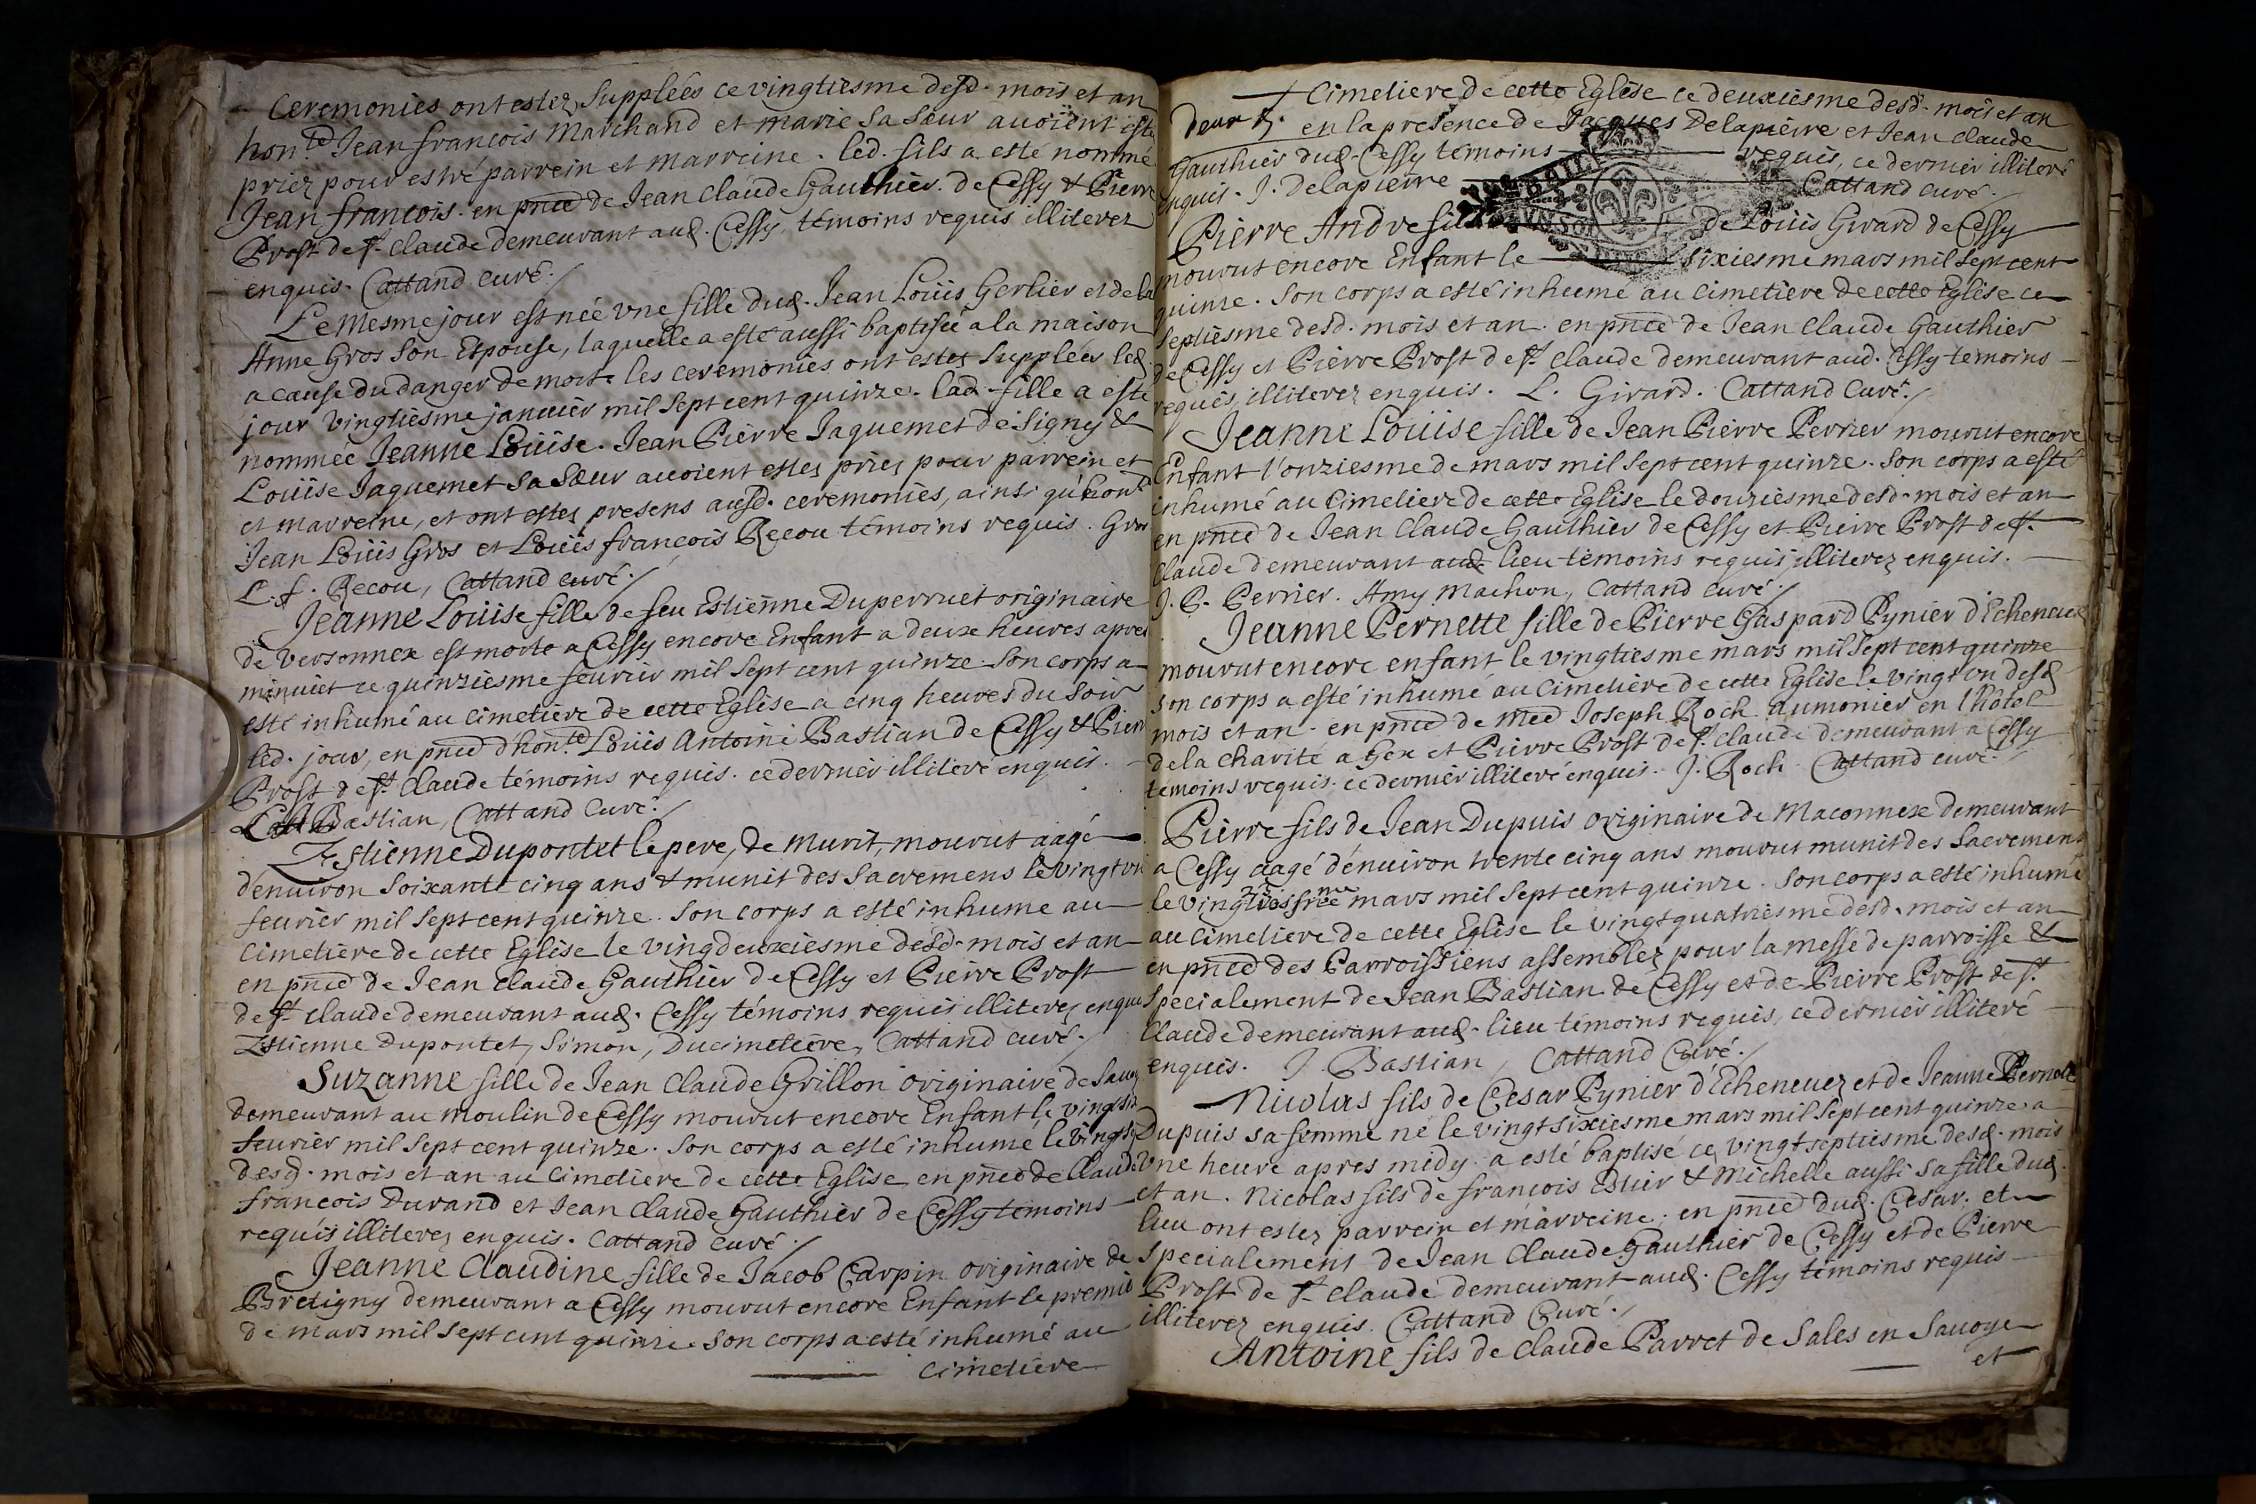 Ceremonies ont estez supplées ce vingtiesme desd. mois et an
hon.te Jean francois Marchand et marie sa sœur avoïent esté
priez pour estré parrein et marreine. led. fils a esté nommé
Jean francois. en pnce de Jean claude Gauthier. de Cessy & Pierre
Prost de st. claude demeurant aud. Cessy, témoins requis illiterez
enquis. Cattand curé.
Le Mesme jour est née une fille dud. Jean Loüis Gerlier et de la
Anne Gros son Espouse, laquelle a esté aussi baptisée a la maison
a cause du danger de mort. les ceremonies ont estez supplées led.
jour vingtiesme janvier mil sept cent quinze. lad. fille a esté
nommée Jeanne Loüise. Jean Pierre Jaquemet de Signy &
Loüise Jaquemet sa sœur avoient estez priez pour parrein et
et marreine, et ont estez presens ausd. ceremonies, ainsi qu'hont
Jean Loüis Gros et Loüis francois Recou témoins requis. Gros
L. f. Recou, Cattand curé.
Jeanne Louise fille de feu Estienne Duperruet originaire
de Versonnex est morte a Cessy encore Enfant a deux heures apres
minuict ce quinziesme fevrier mil sept cent quinze son corps a
esté inhumé au cimetiere de cette Eglise a cinq heures du soir
led. jour, en pnce d'hon.te Loüis Antoine Bastian de Cessy & Pierre
Prost de st. Claude témoins requis. ce dernier illiteré enquis.
Bastian, Cattand Curé.
Estienne Dupontet le pere, de Murit, mourut aagé
d'enuiron soixante cinq ans & munit des sacremens le vingt un
fevrier mil sept cent quinze. son corps a esté inhume au
cimetiere de cette Eglise le vingdeuxiesme desd. mois et an
en pnce de Jean Claude Gauthier de Cessy et Pierre Prost
de st. claude demeurant aud. Cessy témoins requis illiterez enquis
Estienne Dupontet, Simon, Ducimetiere, Cattand curé.
Suzanne fille de Jean Claude Grillon originaire de Sauoy
demeurant au moulin de Cessy mourut encore Enfant le vingt six
fevrier mil sept cent quinze. son corps a esté inhume le vingt sept
desd. mois et an au Cimetiere de cette Eglise en pnce de Claude
francois Durand et Jean Claude Gauthier de Cessy témoins
requis illiterez enquis. Cattand curé.
Jeanne Claudine fille de Jacob Carpin originaire de
Bretigny demeurant a Cessy mourut encore Enfant le premié
de mars mil sept cent quinze. son corps a esté inhumé au
cimetiere
Cimetiere de cette Eglise ce deuxiesme desd. mois et an
deux s. en la presence de Jacques Delapierre et Jean claude
Gauthier dud. Cessy témoins requis, ce dernier illiteré
enquis. J. Delapierre Cattand curé.
Pierre Andre fils de Loüis Girard de Cessy
mourut encore Enfant le sixiesme mars mil sept cent
quinze. son corps a esté inhumé au cimetiere de cette Eglise ce
septiesme desd. mois et an. en pnce de Jean Claude Gauthier
de Cessy et Pierre Prost de st. claude demeurant aud. Cessy témoins
requis, illiterez enquis. L. Girard. Cattand Curé.
Jeanne Loüise fille de Jean Pierre Perrier mourut encore
Enfant l'onziesme de mars mil sept cent quinze. son corps a esté
inhumé au Cimetiere de cette Eglise le douziesme desd. mois et an
en pnce de Jean Claude Gauthier de Cessy et Pierre Prost de st.
Claude demeurant aud. lieu témoins requis illiterez enquis.
J. P. Perrier. Amy Machon, Cattand curé.
Jeanne Pernette fille de Pierre Gaspard Pynier d'Echeneuez
mourut encore enfant le vingtiesme mars mil sept cent quinze
son corps a esté inhumé au Cimetiere de cette Eglise le vingt un desd.
mois et an. en pnce de Joseph Roch aumonier en l'hôtel
de la charité a Gex et Pierre Prost de st. claude demeurant a Cessy
témoins requis. ce dernier illiteré enquis. J. Roch Cattand curé.
Pierre fils de Jean Dupuis originaire de Maconnex demeurant
a Cessy aagé d'enuiron trente cinq ans mourut munit des sacremens
le mars mil sept cent quinze. son corps a esté inhumé
au Cimetiere de cette Eglise le vingt quatriesme desd. mois et an
en pnce des Parroissiens assemblez pour la messe de parroisse &
specialement de Jean Bastian de Cessy et de Pierre Prost de st.
Claude demeurant aud. lieu témoins requis, ce dernier illiteré
enquis. J. Bastian, Cattand Curé.
Nicolas fils de Cesar Pynier d'Echeneuez et de Jeanne Pernette
Dupuis sa femme né le vingt sixiesme mars mil sept cent quinze a
une heure apres midy. a esté baptisé ce vingt septiesme desd. mois
et an. Nicolas fils de francois Estier & Michelle aussi sa fille dud.
lieu ont estez parrein et marreine. en pnce dud. Cesar. et
specialement de Jean Claude Gauthier de Cessy et de Pierre
Prost de st. claude demeurant aud. Cessy témoins requis
illiterez enquis. Cattand Curé.
Antoine fils de Claude Parret de Sales en Savoye
et